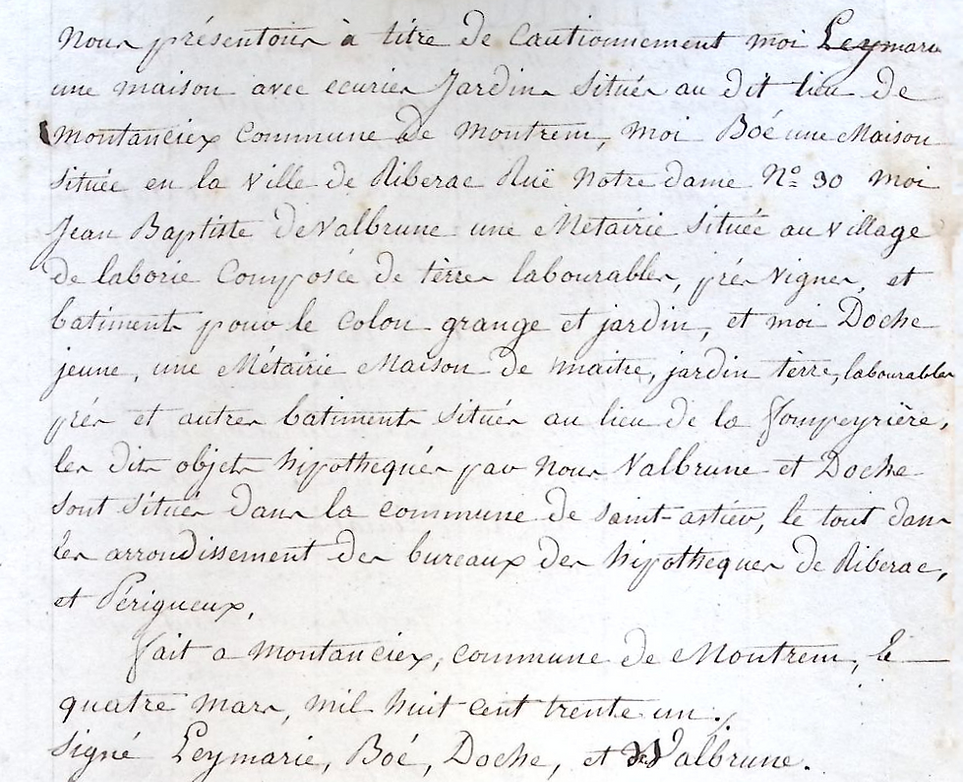 Nous présentons à titre de Cautionnement moi Leymarie
une maison avec ecuries Jardins Situés au dit lieu de
montanceix Commune de montrem, moi Boé une Maison
Située en la Ville de Riberac Ruë Notre dame Nº 30 moi
Jean Baptiste de Valbrune une Métairie Située au village
de laborie Composée de tèrres labourables, prés vignes, et
batiments pour le Colon grange et jardin, et moi Doche
jeune, une Métairie Maison de maitre, jardin tèrre, labourables
prés et autres batiments Situés au lieu de la Jompeyrière,
les dits objets hipothequés par Nous Valbrune et Doche
sont Situés dans la commune de saint-astier, le tout dans
les arrondissement des bureaux des hipotheques de Riberac,
et Périgueux,
fait a montanceix, commune de Montrem, le
quatre mars, mil huit cent trente un.
Signé Leymarie, Boé, Doche, et de Valbrune.